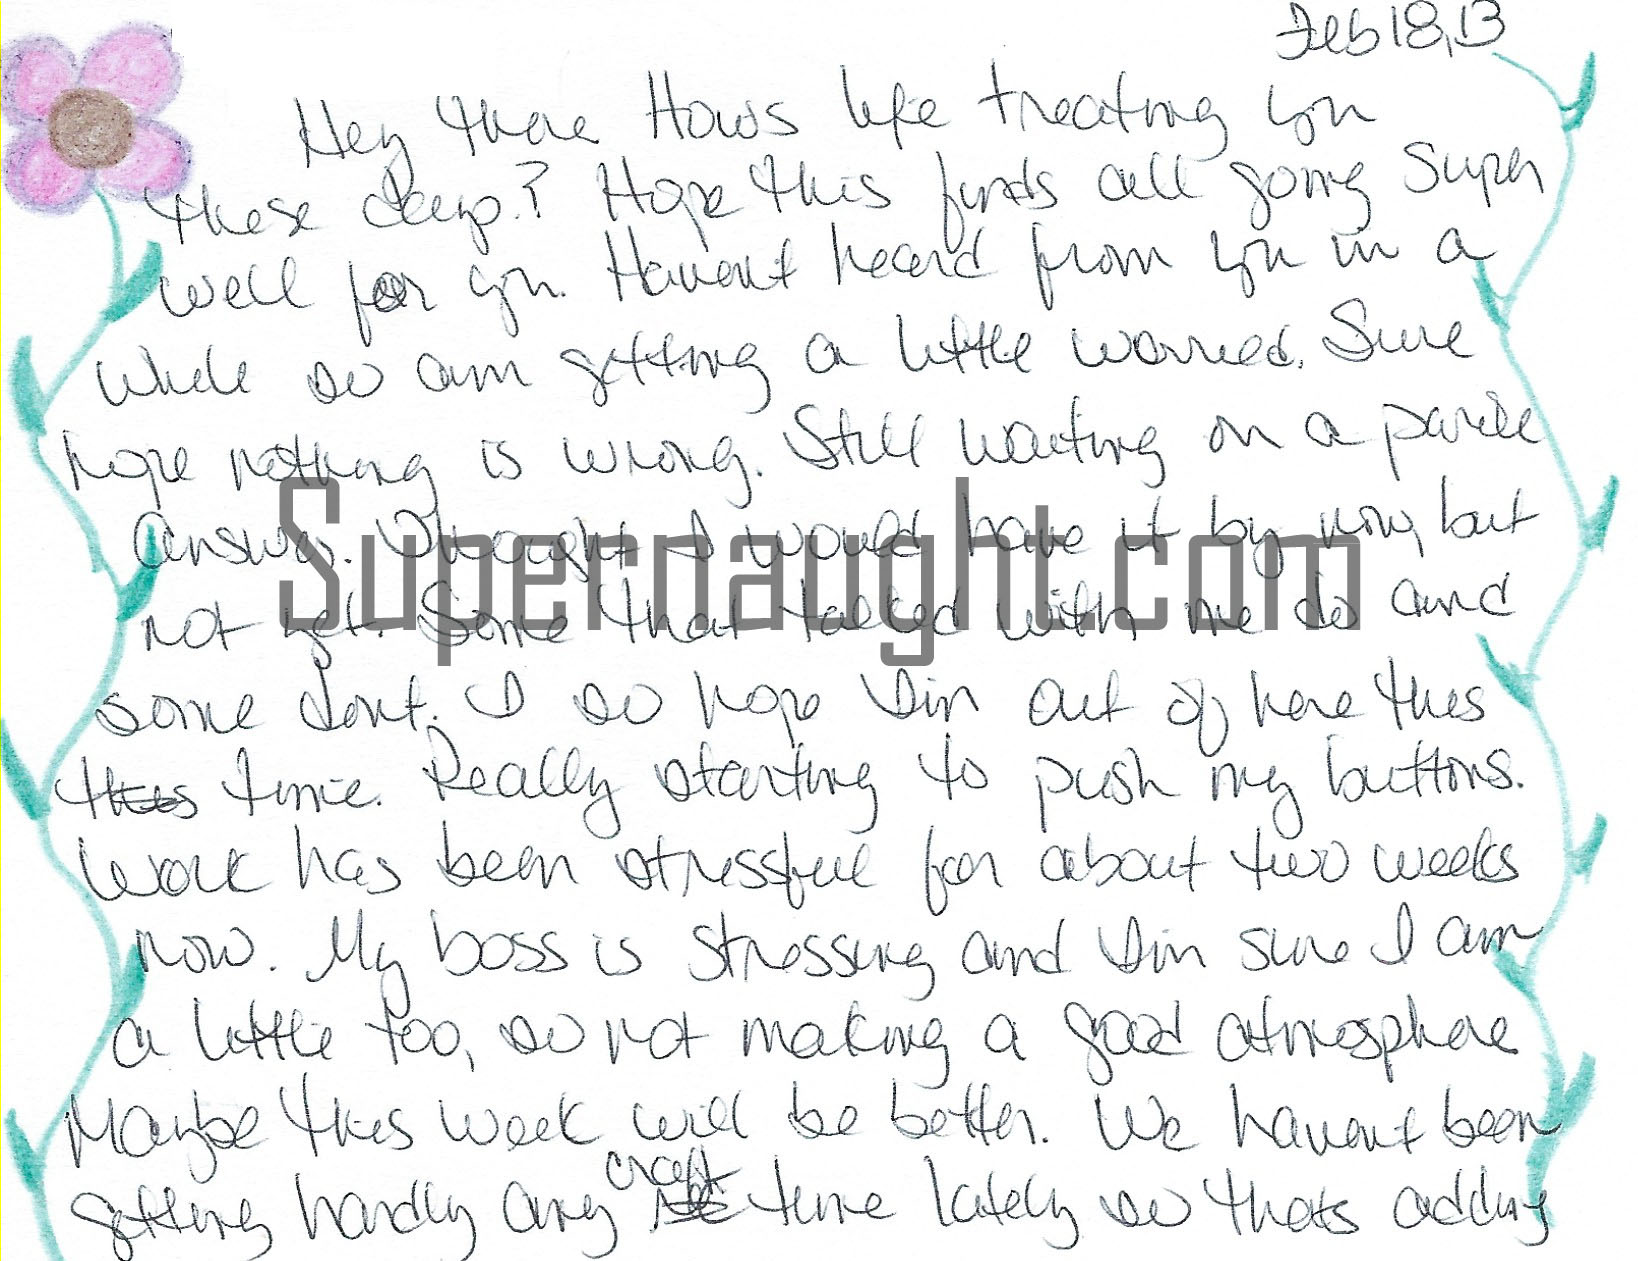 Feb 18, 13
Hey there Hows life treating you
these days? Hope this finds all going super
well for you. Havent heard from you in a
while so am getting a little worried. Sure
hope nothing is wrong. Still waiting on a parole
answer. Thought I would have it by now, but
Supernaught.com
not yet. Some that talked with me do and
some dont. I so hope Im out of here this
this time. Really starting to push my buttons.
Work has been stressful for about two weeks
now. My boss is stressing and Im sure I am
a little too, so not making a good atmosphere
Maybe this week will be better. We havent been
getting hardly any craft time lately so thats adding